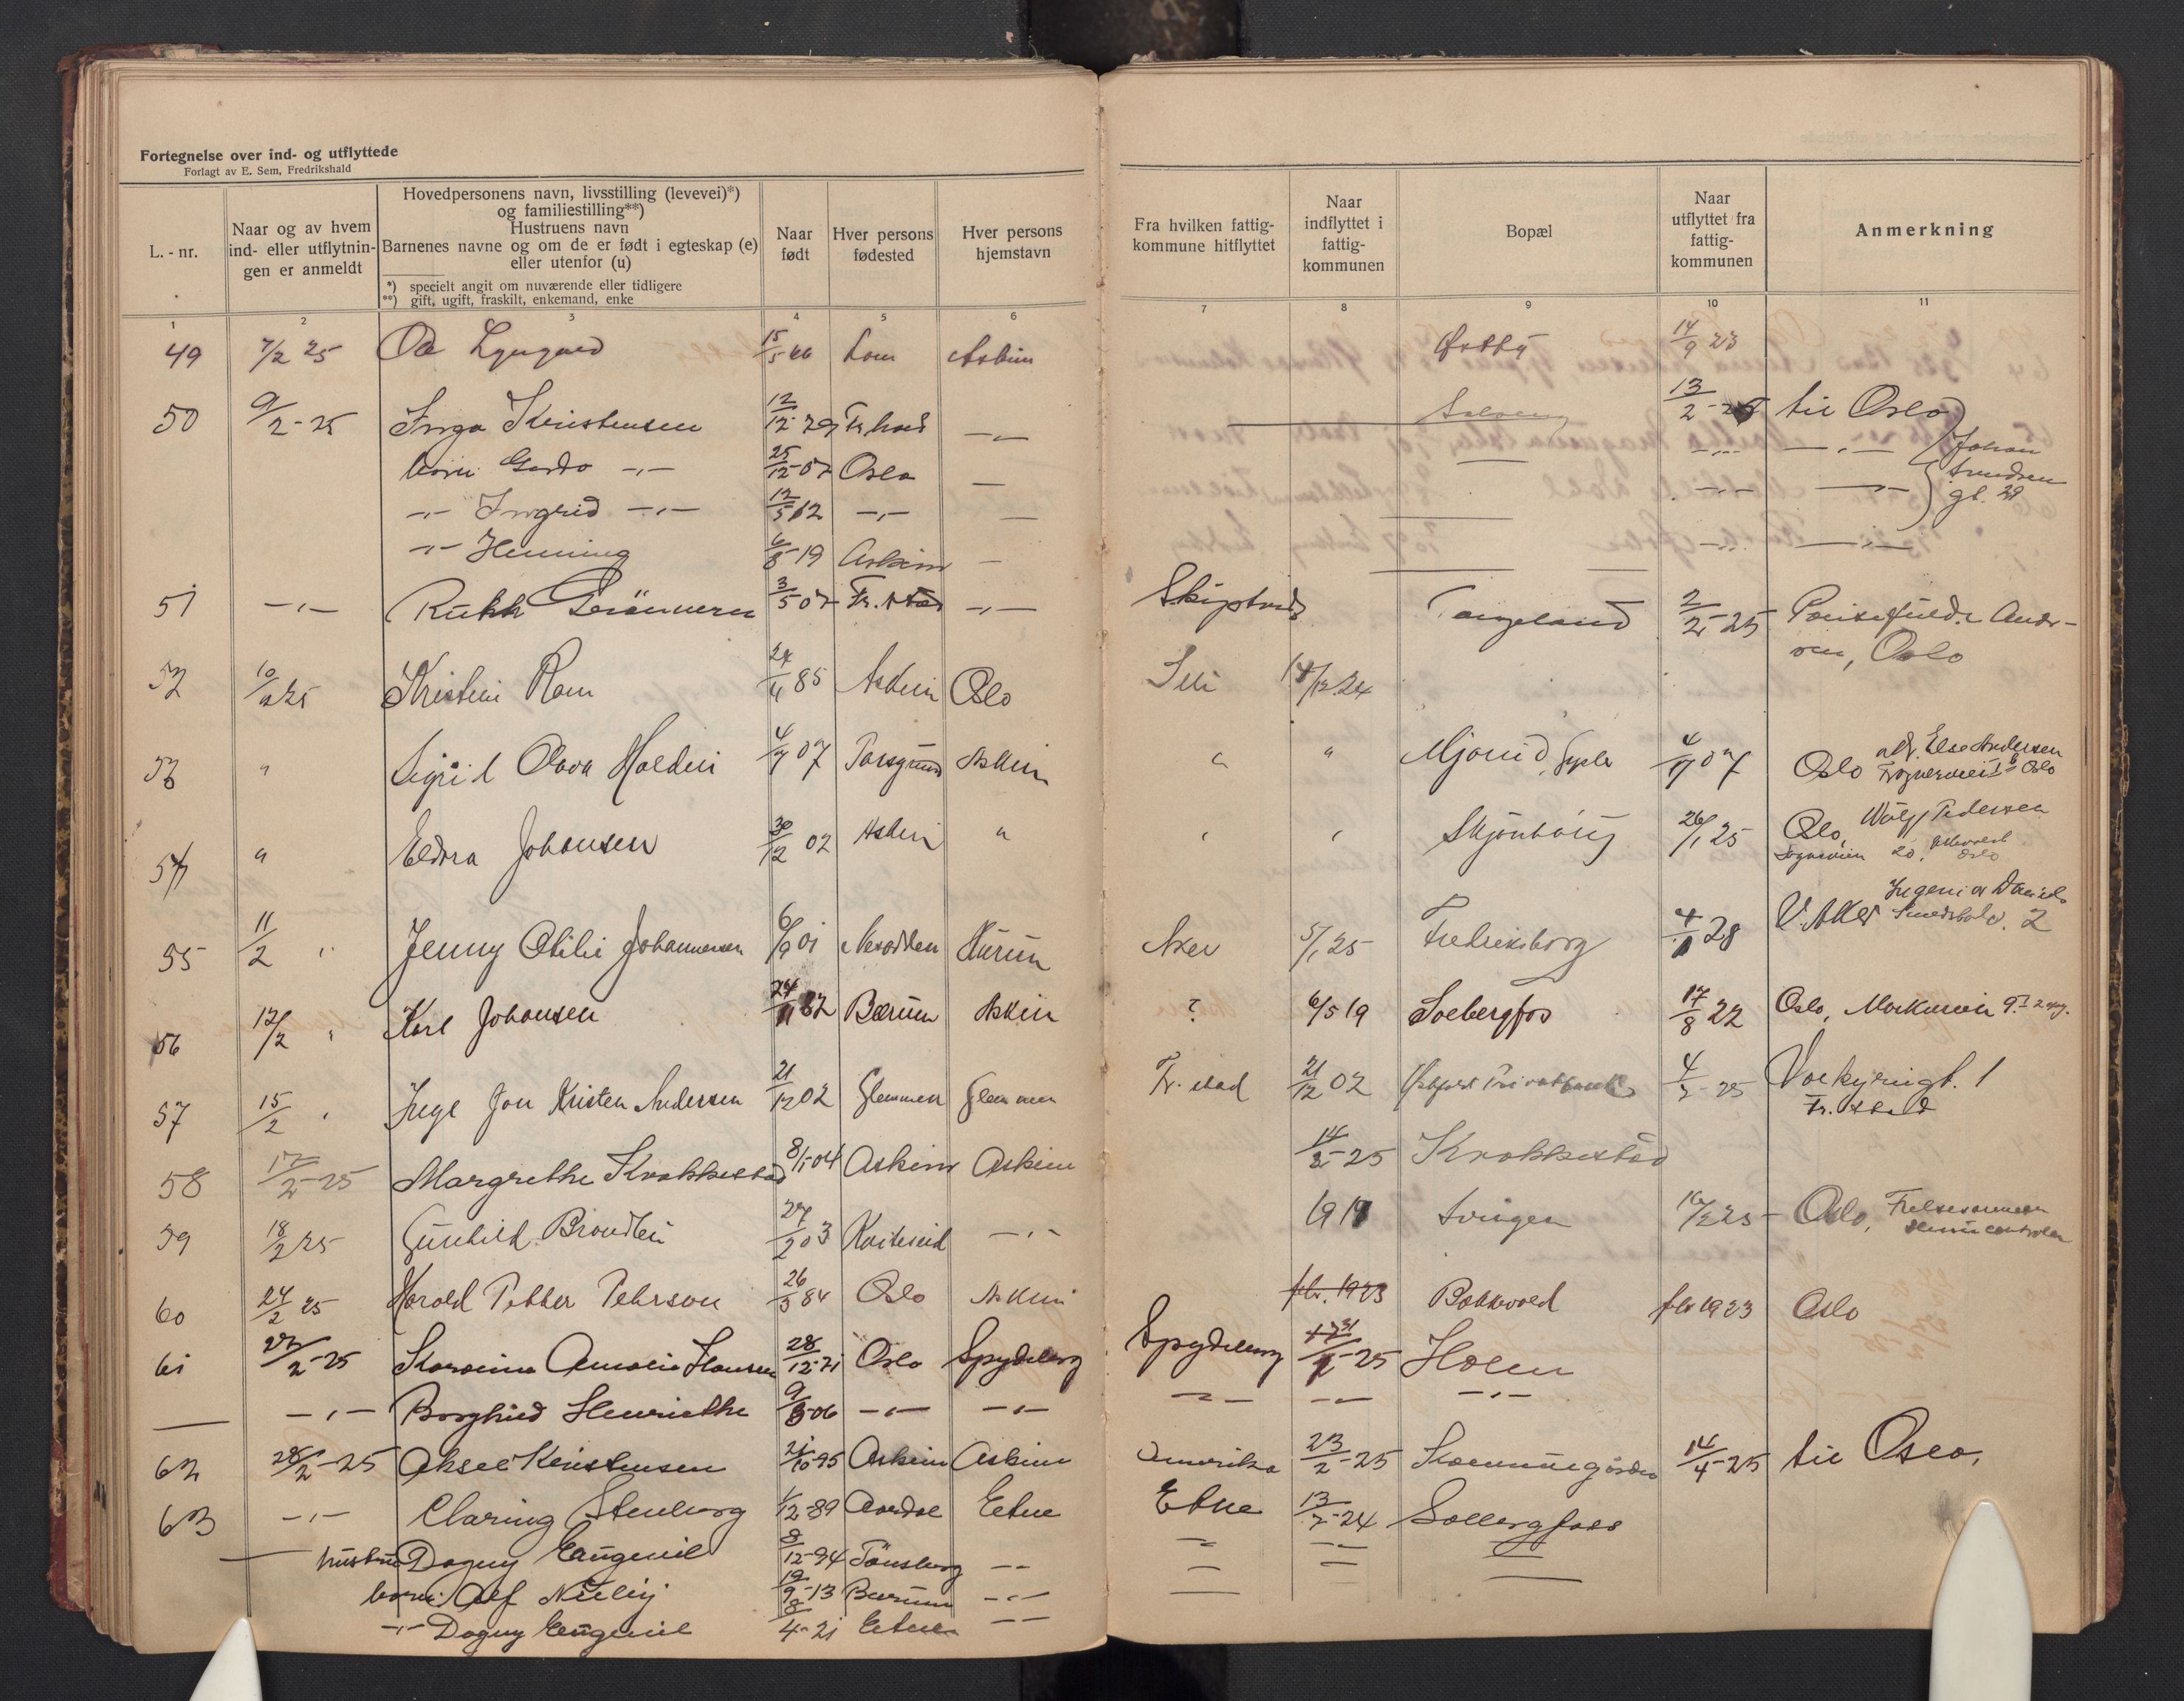 Fortegnelse over ind- og utflyttede
Forlagt av E. Sem, Fredrikshald
L.-nr.
Naar og av hvem ind- eller utflytnin-gen er anmeldt
Hovedpersonens navn, livsstilling (levevei)*)
og familiestilling**)
Hustruens navn
Barnenes navne og om de er født i egteskap (e)
eller utenfor (u)
*) specielt angit om nuværende eller tidligere
**) gift, ugift, fraskilt, enkemand, enke
Naar født
Hver persons fødested
Hver persons hjemstavn
Fra hvilken fattig-kommune hitflyttet
Naar indflyttet i fattig-kommunen
Bopæl
Naar utflyttet fra fattig-kommunen
Anmerkning
1 2 3 4 5 6 7 8 9 10 11
49 7/2 25 15/5 66 Lom Askim Østby 14/9 23
50 9/2-25 Inga Kristensen 12/12-79 Fr.hald -"- 13/2-25 til Oslo
barn Gerda -"- 25/12-07 Oslo — — -"- -"- Johan
-"- Ingrid -"- 12/5 12 -"- — — -"- -"- gt. 29
-"- Henning 6/8-19 Askim — — -"- -"-
51 -"- Ruth 3/5 07 Fr.stad -"- Skiptvedt Tangeland 2/2-25 Andr-
sen, Oslo
52 10/2 25 Kristin Ram 24/4 85 Askim Oslo 18/12 24
53 " Sigrid Olava Holden 4/7 07 Porsgrund Askim " " 4/7 07 Oslo adr. Else Andersen
Oslo
54 " Eldora Johansen 30/12 02 Askim " " " Skjønhaug 26/1 25 Oslo, Pedersen
20, Oslo
55 11/2 " Jenny Otilie Johannessen 6/9 01 Nesodden Hurum Aker 5/1 25 Fredriksborg 4/1 28 V. Aker Ingeniør
2
56 12/2 " Karl Johansen 24/11 82 Bærum Askim ? 6/5 19 Solbergfos 17/8 22 Oslo,
57 15/2 " Inge Jon Kristen Andersen 21/12 02 Glemmen Glemmen Fr.stad 21/12 02 Privatbank 4/2-25 1
Fr.stad
58 17/2-25 Margrethe Krokkestad 8/1-04 Askim Askim 14/2-25 Krokkestad
59 18/2 25 Gunhild 27/2 03 Kviteseid -"- 1919 Svingen 16/2 25 Oslo, Frelsesarmeen
60 24/2 25 Harald Petter Pehrson 26/3 84 Oslo Askim febr. 1923 Bakkevold febr 1923 Oslo
61 27/2-25 Karoline Amalie Hansen 28/12-71 Oslo Spydeberg Spydeberg -25 Holm
— -"- Borghild Henriette 9/8-06 -"- -"- -"- -"- -"-
62 28/2-25 Aksel Kristensen 21/10-95 Askim Askim Amerika 23/2-25 Kommunegården 14/4-25 til Oslo.
63 -"- Claring Stenberg 1/12-89 Aardal Etne Etne 13/7-24 Solbergfoss
— hustru Dagny Eugenie 8/12-94 Tønsberg -"- -"- -"- —
barn: Alf 19/9-13 Bærum -"- — — —
-"- Dagny Eugenie 8/4-21 Etne -"-